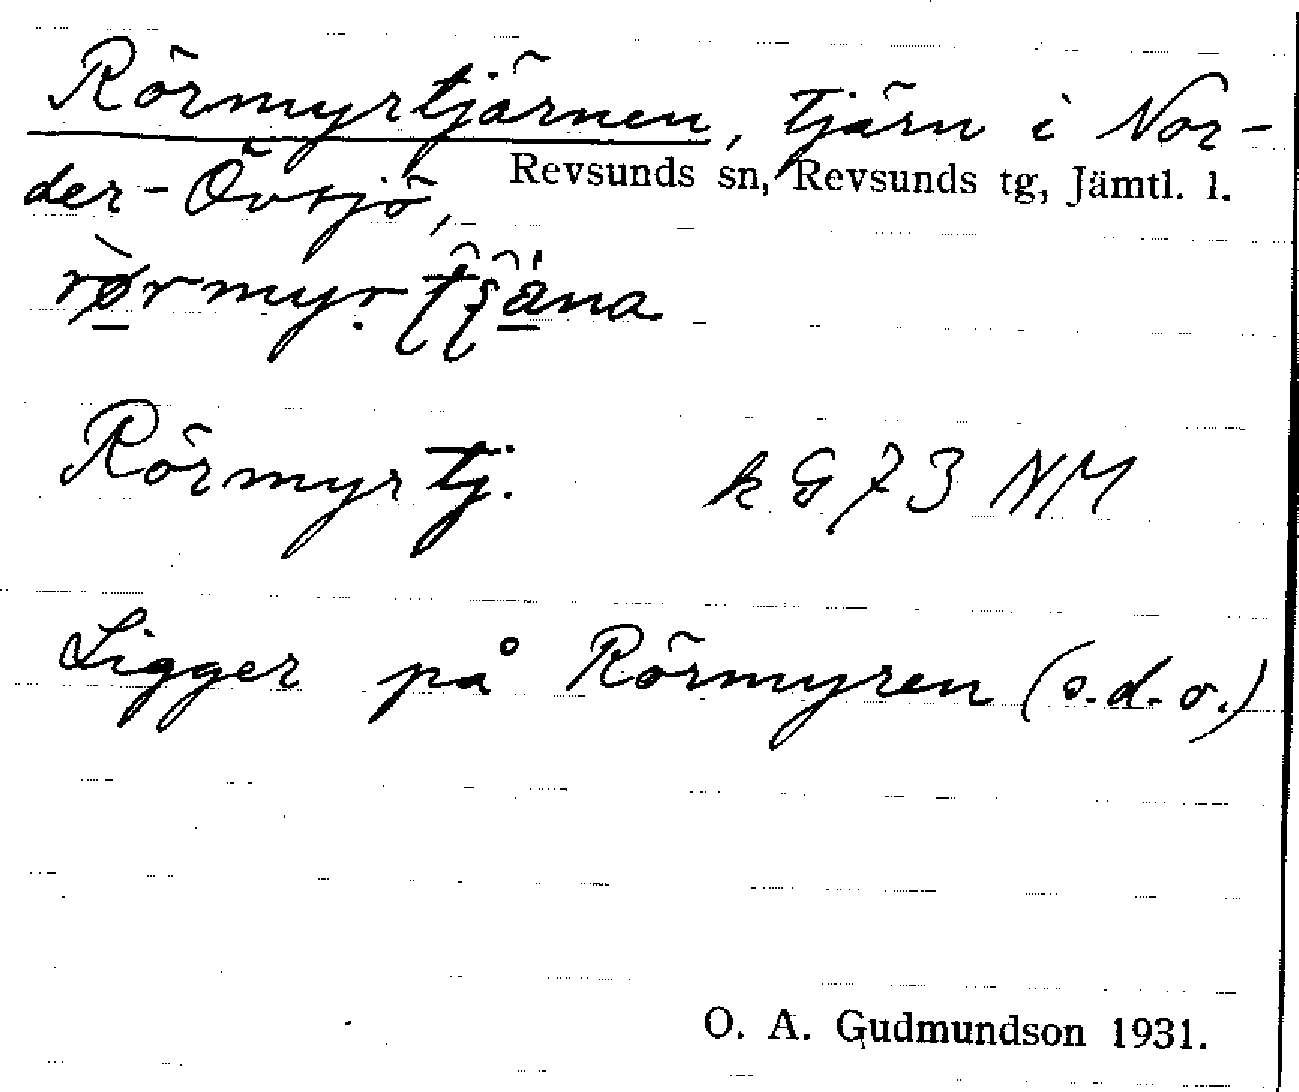 Rörmyrtjärnen, tjärn i Nor-
der-Övsjö,
Revsunds sn, Revsunds tg, Jämtl. l.
Rörmyrtj. k G 73 NM
Ligger på Rörmyren (s.d.o.)
O. A. Gudmundson 1931.